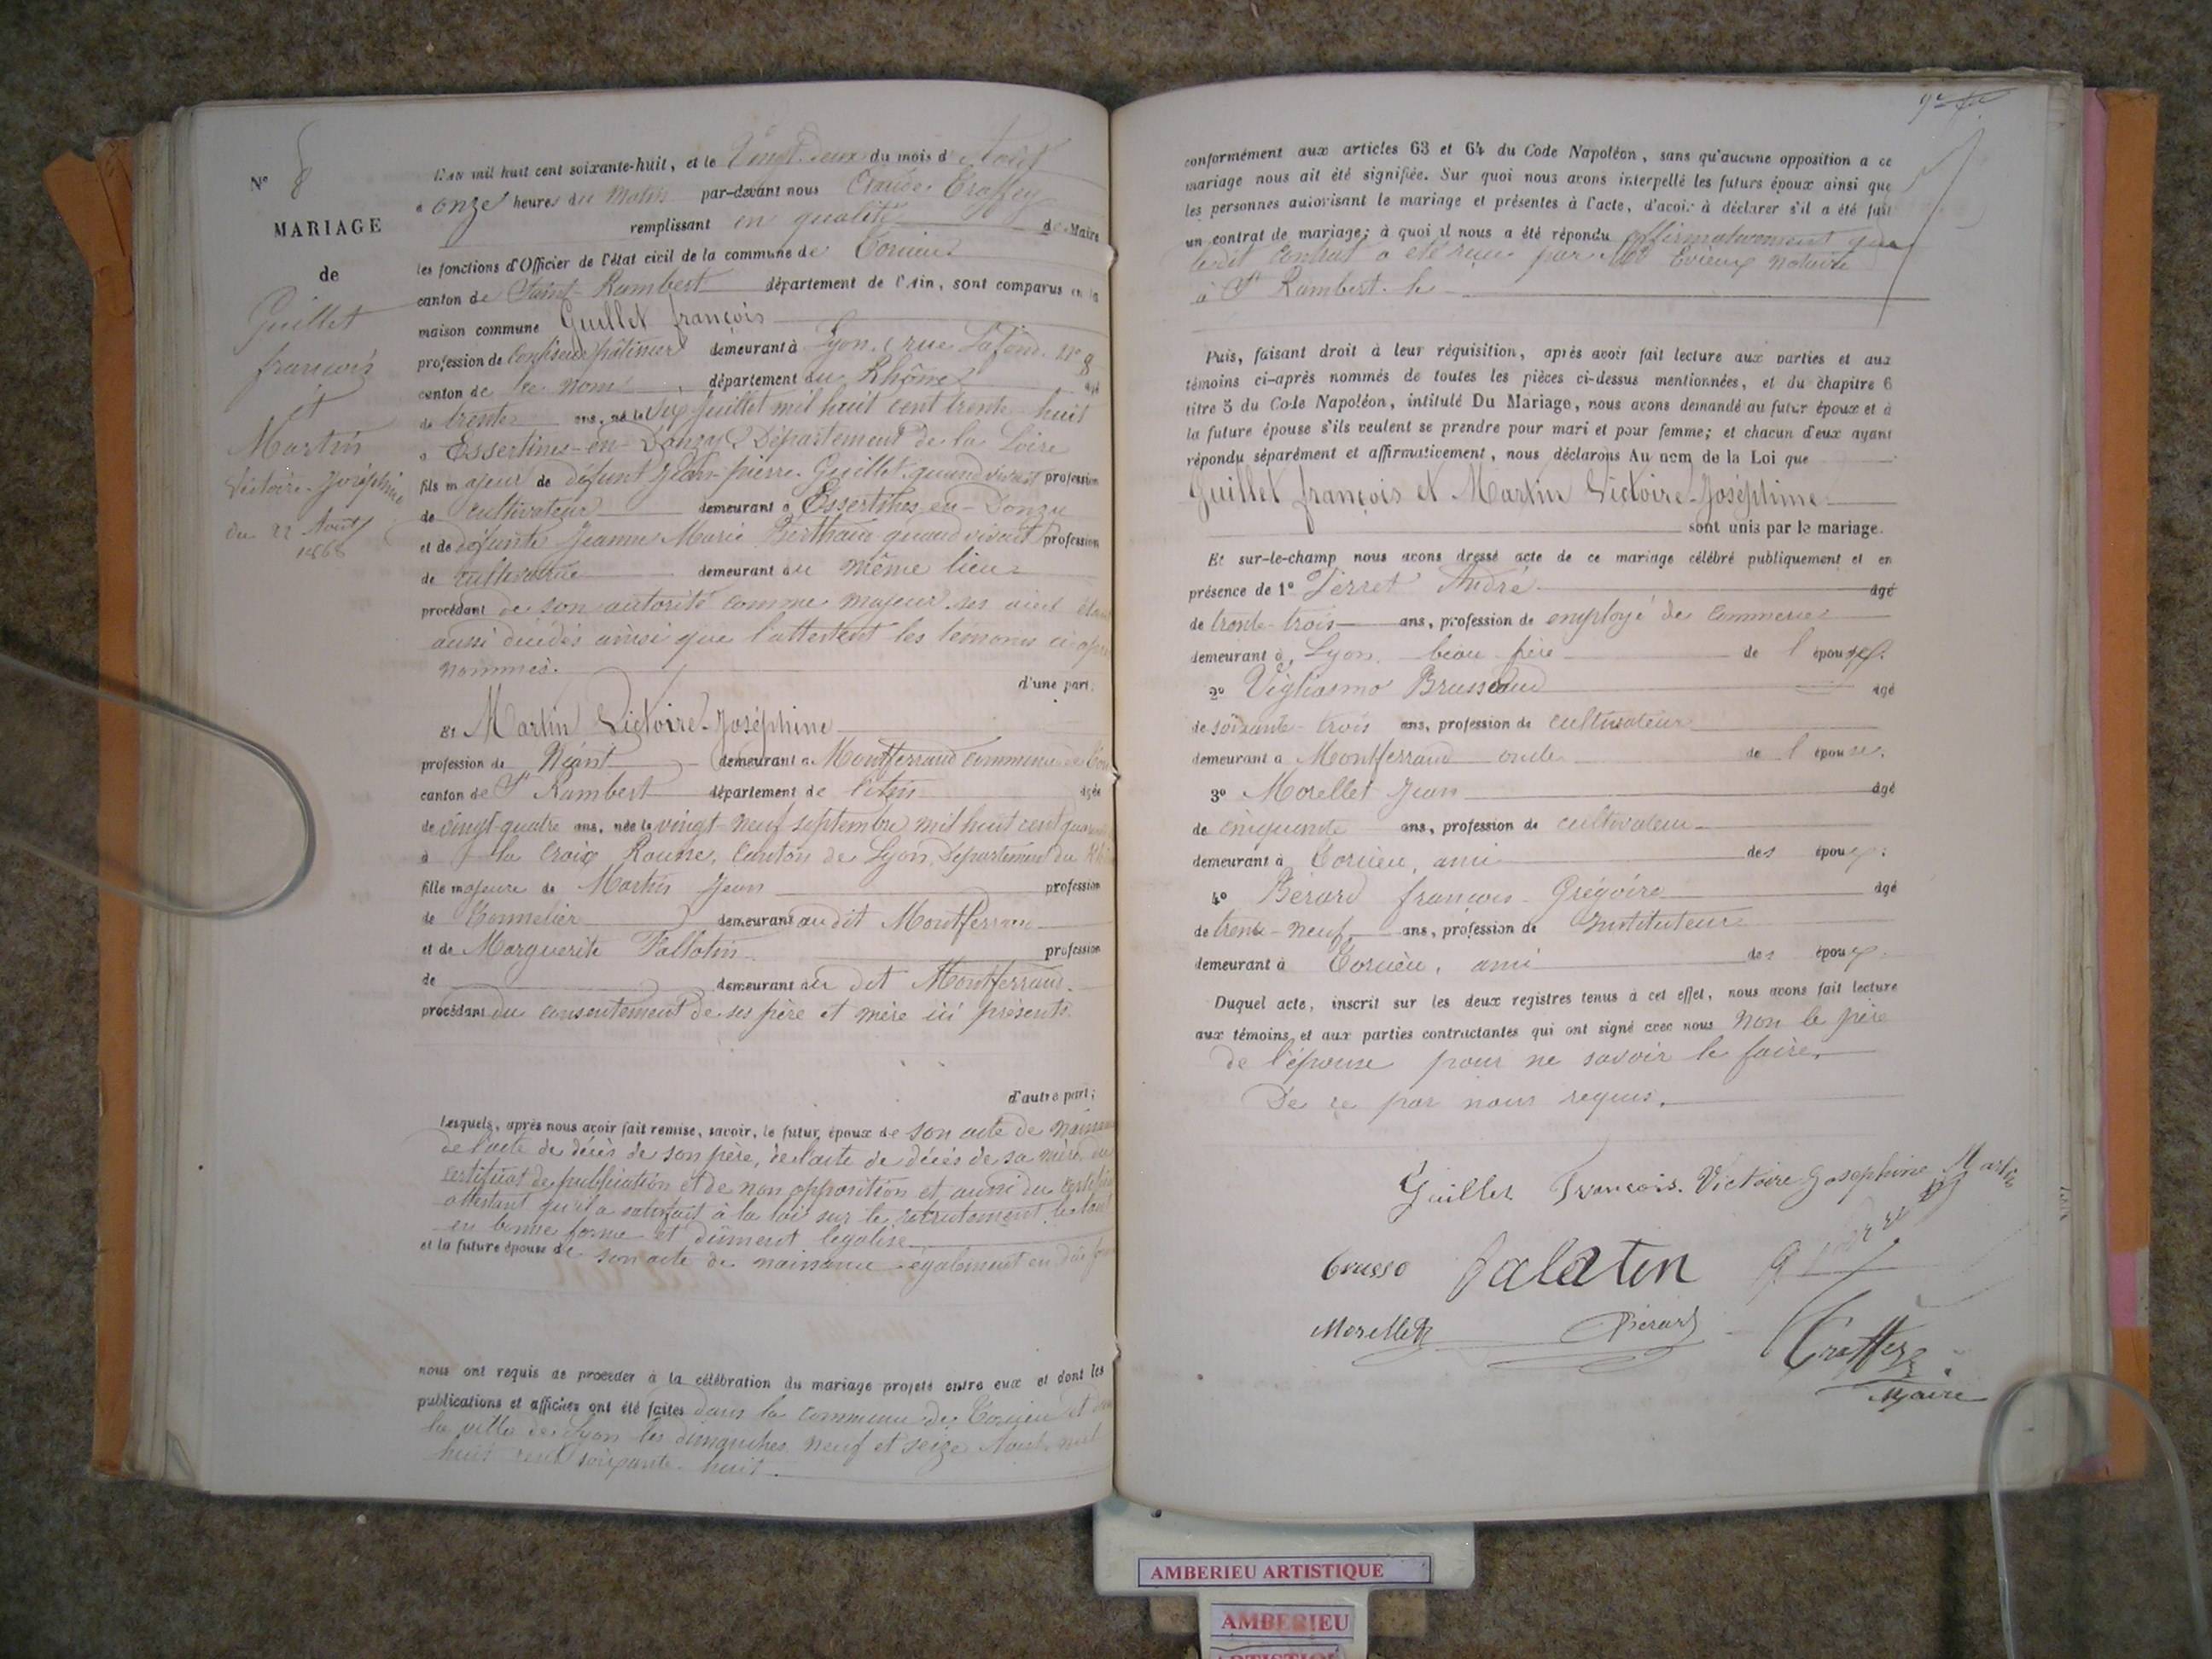 N° 8
MARIAGE
de
Guillet
françois
et
Martin
Victoire-Joséphine
du 22 Août
1868
L'an mil huit cent soixante-huit, et le Vingt deux du mois d'Août
à onze heures du matin par-devant nous Claude Troffey
remplissant en qualité de Maire
les fonctions d'Officier de l'état civil de la commune de Torcieu
canton de Saint-Rambert département de l'Ain, sont comparus en la
maison commune Guillet françois
profession de confiseur pâtissier demeurant à Lyon, rue Lafond n° 8
canton de ce nom, département du Rhône âgé
de trente ans, né le six Juillet mil huit cent trente huit
à Essertines-en-Donzy Département de la Loire
fils majeur de défunt Jean-pierre Guillet quand vivait profession
de cultivateur demeurant à Essertines-en-Donzy
et de défunte Jeanne Marie quand vivait profession
de cultivatrice demeurant au même lieu
procédant de son autorité comme majeur ses aieul étant
aussi décédés ainsi que l'attestent les témoins ci-après
nommés.
d'une part.
Et Martin Victoire-Joséphine
profession de Néant demeurant à Montferrand commune de
canton de St Rambert département de l'Ain âgée
de vingt-quatre ans, née le vingt-neuf septembre mil huit cent
à la Croix Rousse, Canton de Lyon, Département du
fille majeure de Martin Jean profession
de demeurant au dit Montferrand
et de Marguerite profession
de demeurant au dit Montferrand.
procédant du consentement de ses père et mère ici présents.
d'autre part;
Lesquels, après nous avoir fait remise, savoir, le futur époux de son acte de
de l'acte de décès de son père, de l'acte de décès de sa mère, du
certificat de publication et de non opposition et aussi du
attestant qu'il a satisfait à la loi sur le recrutement, le tout
en bonne forme et dûment légalisé
et la future épouse de son acte de naissance également en
nous ont requis de procéder à la célébration du mariage projeté entre eux et dont les
publications et affiches ont été faites dans la commune de Torcieu et
la ville de Lyon les dimanches neuf et seize Août mil
huit cent soixante-huit.
conformément aux articles 63 et 64 du Code Napoléon, sans qu'aucune opposition a ce
mariage nous ait été signifiée. Sur quoi nous avons interpellé les futurs époux ainsi que
les personnes autorisant le mariage et présentes à l'acte, d'avoir à déclarer s'il a été fait
un contrat de mariage; à quoi il nous a été répondu affirmativement que
ledit contrat a été reçu par notaire
à St Rambert. le
Puis, faisant droit à leur réquisition, après avoir fait lecture aux parties et aux
témoins ci-après nommés de toutes les pièces ci-dessus mentionnées, et du chapitre 6
titre 5 du Code Napoléon, intitulé Du Mariage, nous avons demandé au futur époux et à
la future épouse s'ils veulent se prendre pour mari et pour femme; et chacun d'eux ayant
répondu séparément et affirmativement, nous déclarons Au nom de la Loi que
Guillet françois et Martin Victoire-Joséphine
sont unis par le mariage.
Et sur-le-champ nous avons dressé acte de ce mariage célébré publiquement et en
présence de 1° André âgé
de trente-trois ans, profession de employé de commerce
demeurant à Lyon, beau-frère de l'épouse.
2° âgé
de soixante-trois ans, profession de cultivateur
demeurant à Montferrand oncle de l'épouse.
3° Morellet Jean âgé
de cinquante ans, profession de cultivateur
demeurant à Torcieu, ami des époux.
4° Bérard françois Grégoire âgé
de trente-neuf ans, profession de Instituteur
demeurant à Torcieu, ami des époux.
Duquel acte, inscrit sur les deux registres tenus à cet effet, nous avons fait lecture
aux témoins et aux parties contractantes qui ont signé avec nous Non le père
de l'épouse pour ne savoir le faire,
De ce par nous requis.
Guillet François. Victoire Josephine Martin
Brusso Palatin
Morellet Bérard
Troffey
Maire
AMBERIEU ARTISTIQUE
AMBERIEU
ARTISTIQUE